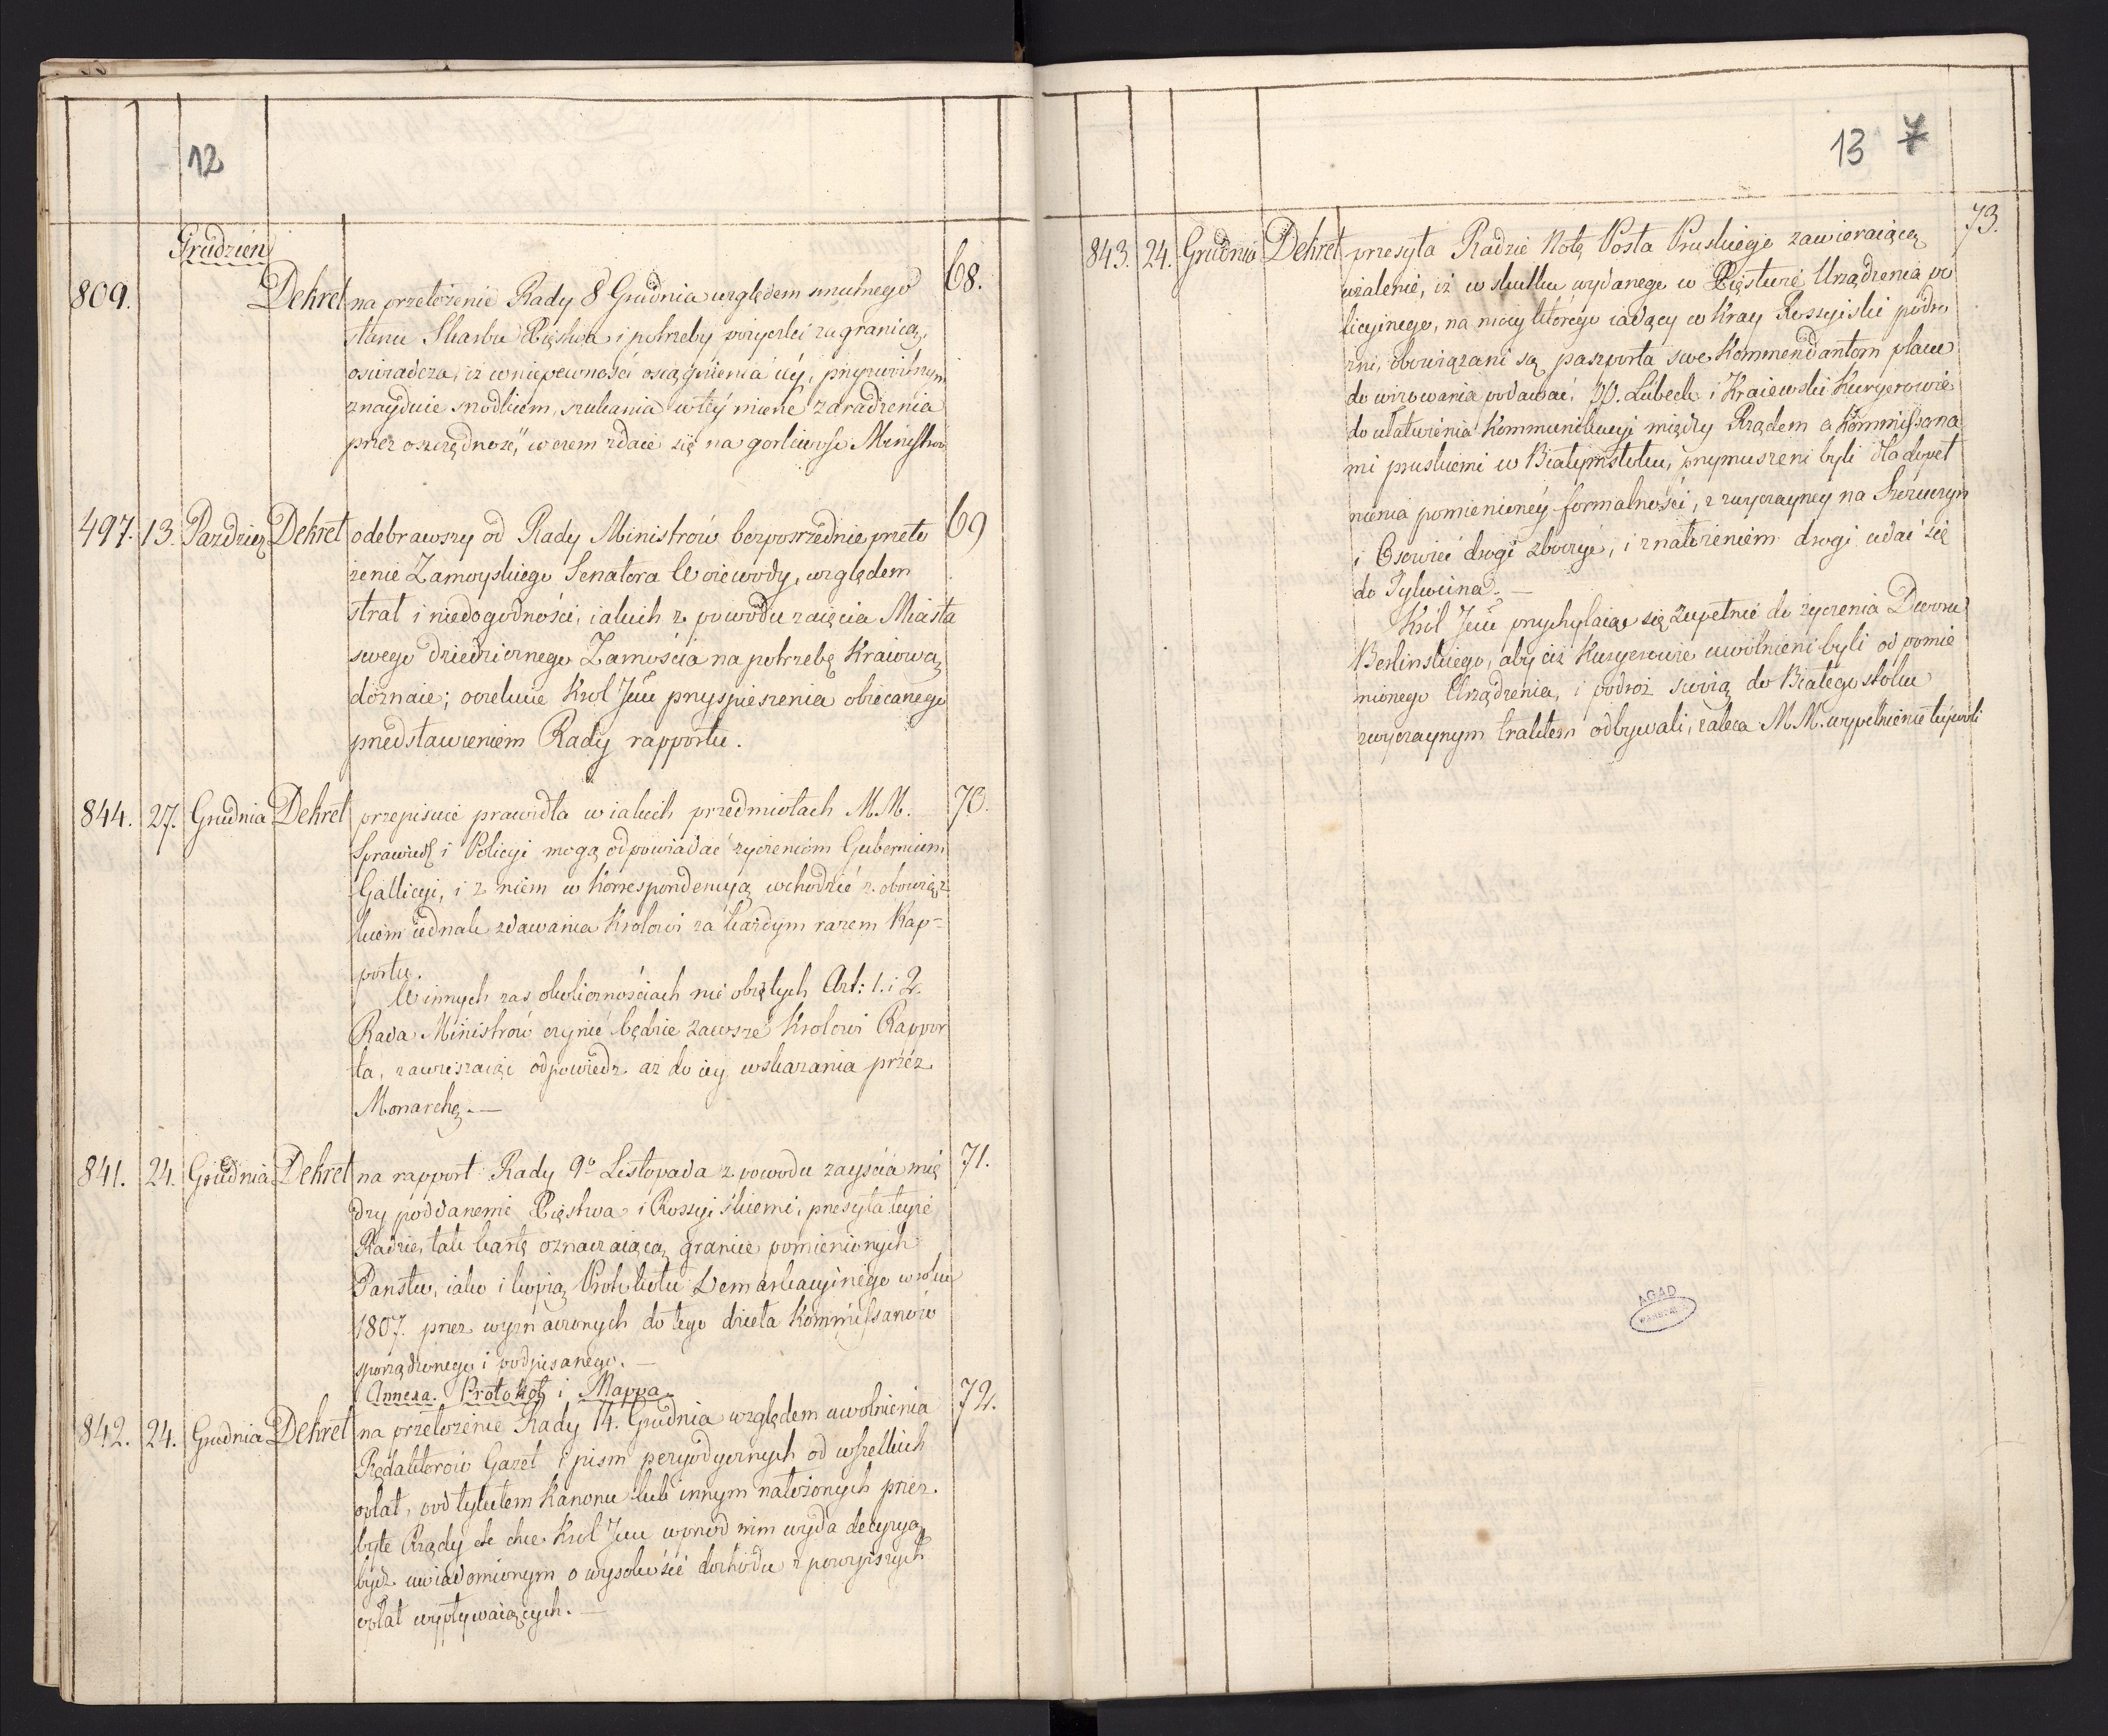 12
Grudzień
809. Dekret na przełożenie Rady 8 Grudnia względem smutnego 68.
stanu Skarbu Xięstwa i potrzeby pożyczki zagranicą,
oświadcza, iż w niepewności osiągnienia iéy, przyzwoitszym
znayduie srodkiem, szukania w téy mierze zaradzenia
przez oszczędność, w czem zdaie się na gorliwość Ministrów
497. 13. Pazdzier Dekret odebrawszy od Rady Ministrów bezposrzednie przeło 69
żenie Zamoyskiego Senatora Woiewody, względem
strat i niedogodności, iakich z powodu zaięcia Miasta
swego dziedzicznego Zamościa na potrzebę Kraiową
doznaie; oczekuie Krol Jmć przyspieszenia obiecanego
przedstawieniem Rady rapportu.
844. 27. Grudnia Dekret przepisuie prawidła w iakich przedmiotach M.M. 70.
Sprawiedl i Policyi mogą odpowiadać życzeniom Gubernium
Gallicyi, i z niem w Korrespondencyą wchodzić z obowiąz
kiem iednak zdawania Krolowi za każdym razem Rap=
portu.
W innych zas okolicznościach nie obiętych Art: 1. i 2.
Rada Ministrów czynić będzie zawsze Krolowi Rappor
ta, zawieszaiąc odpowiedz aż do iey wskazania przez
Monarchę. —
841. 24. Grudnia Dekret na rapport Rady 9º Listopada z powodu zayścia mię 71.
dzy poddanemi Xięstwa i Rossyiskiemi, przesyła teyże
Radzie, tak kartę oznaczaiącą granice pomienionych
Państw, iako i kopią Protokołu Demarkacyinego w roku
1807. przez wyznaczonych do tego dzieła Kommissarzów
sporządzonego i podpisanego. —
Annexa. Protokoł i Mappa.
842. 24. Grudnia Dekret na przełożenie Rady 14. Grudnia względem uwolnienia 72.
Redaktorów Gazet i pism peryodycznych od wszelkich
opłat, pod tytułem Kanonu lub innym nałożonych przez
byłe Rządy chce Krol Jmć wprzod nim wyda decyzyą
bydź uwiadomionym o wysokości dochodu z powyższych
opłat wypływaiących. —
13 7
843. 24. Grudnia Dekret przesyła Radzie Notę Posła Pruskiego zawieraiącą 73.
użalenie, iż w skutku wydanego w Xięstwie Urządzenia po
licyinego, na mocy którego iadący w Kray Rossyiski podró
żni, obowiązani są paszporta swe Kommendantom placu
do wizowania podawać, PP. Lübeck i Kraiewski Kuryerowie
do ułatwienia Kommunikacyi między Rządem a Kommissarza
mi pruskiemi w Białymstoku, przymuszeni byli dla dopeł
nienia pomienioney formalności, z zwyczayney na Szczuczyn
i Osowiec drogi zboczyć, i z nałożeniem drogi udać się
do Tykocina. —
Król Jmć przychylaiąc się zupełnie do życzenia Dworu
Berlinskiego, aby ciż Kuryerowie uwolnieni byli od pomie
nionego Urządzenia, i podroż swoią do Białegostoku
zwyczaynym traktem odbywali, zaleca M.M. wypełnienie téy woli
AGAD
WARSZAWA